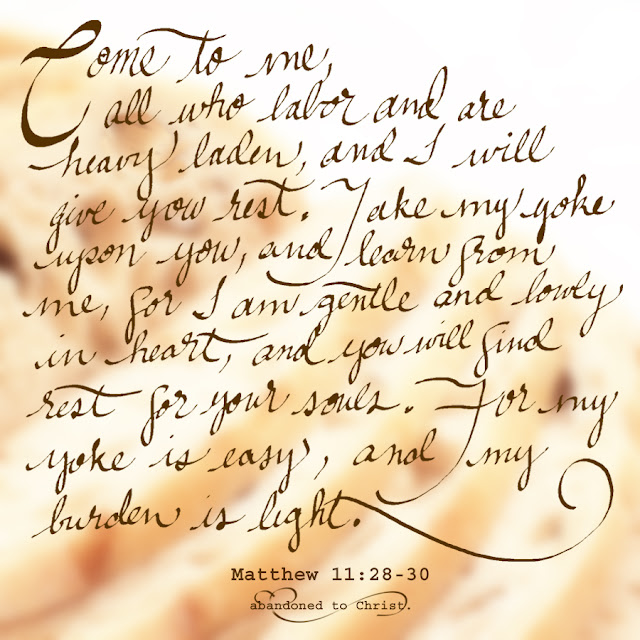 Come to me,
all who labor and are
heavy laden, and I will
give you rest. Take my yoke
upon you, and learn from
me, for I am gentle and lowly
in heart, and you will find
rest for your souls. For my
yoke is easy, and my
burden is light.
Matthew 11:28-30
abandoned to Christ.